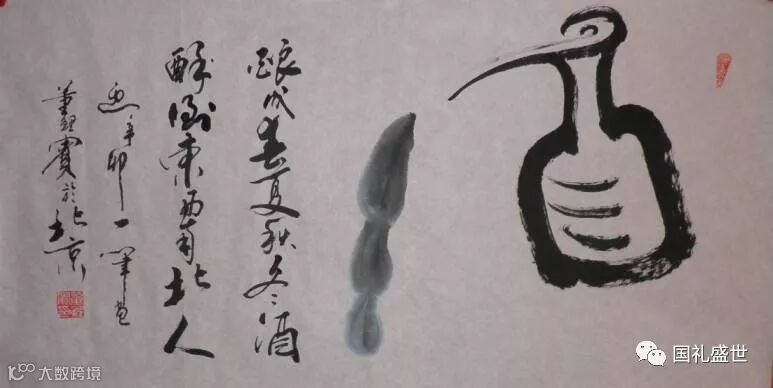 酿成春夏秋冬酒
醉倒東西南北人
辛卯一笔
董於北京
国礼盛世
大数跨境